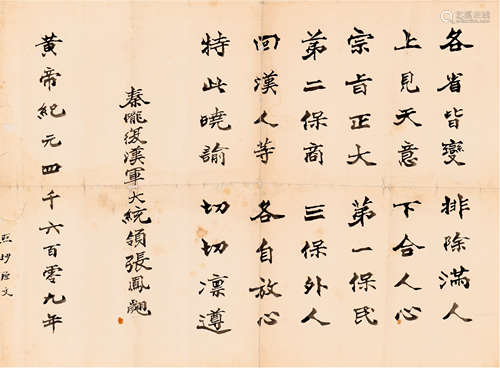 各省皆變 排除滿人
上見天意 下合人心
宗旨正大 第一保民
第二保商 三保外人
回漢人等 各自放心
特此曉諭 切切凛遵
秦隴復漢軍大統領張鳳翽
黃帝紀元四千六百零九年
照抄原文